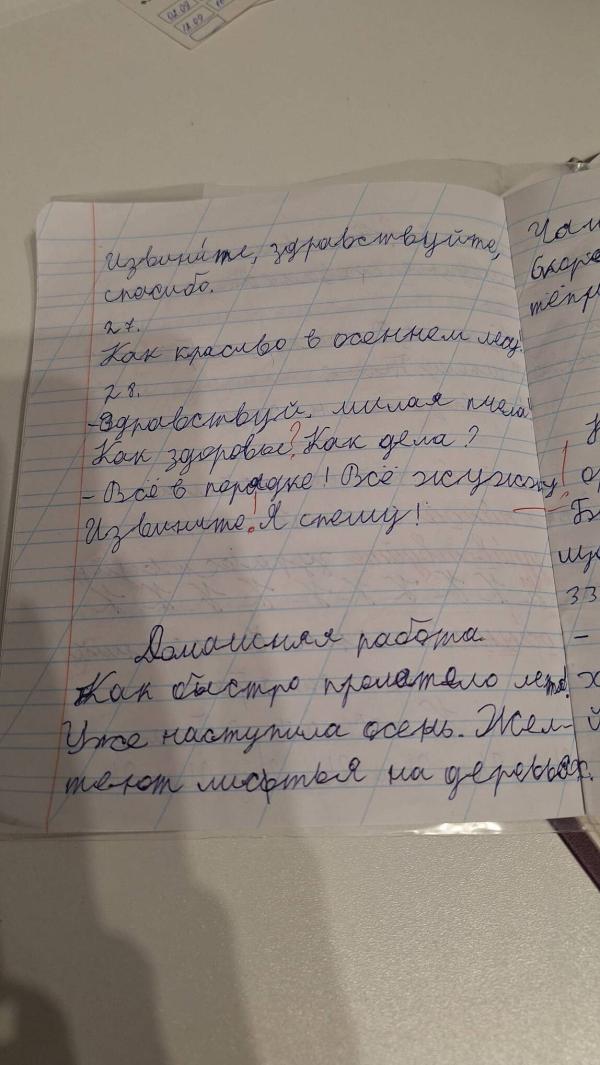 02.09
11.09
Извини́те, здравствуйте,
спасибо.
27.
Как красиво в осеннем лесу.
28.
- Здравствуй, милая пчела!
Как здоровье? Как дела?
- Всё в порядке! Всё жужжу!
Извините! Я спешу!
Домаисняя работа.
Как быстро пролетело лето!
Уже наступила осень. Жел-
теют листья на деревьях.
Чам
тепр
33
-